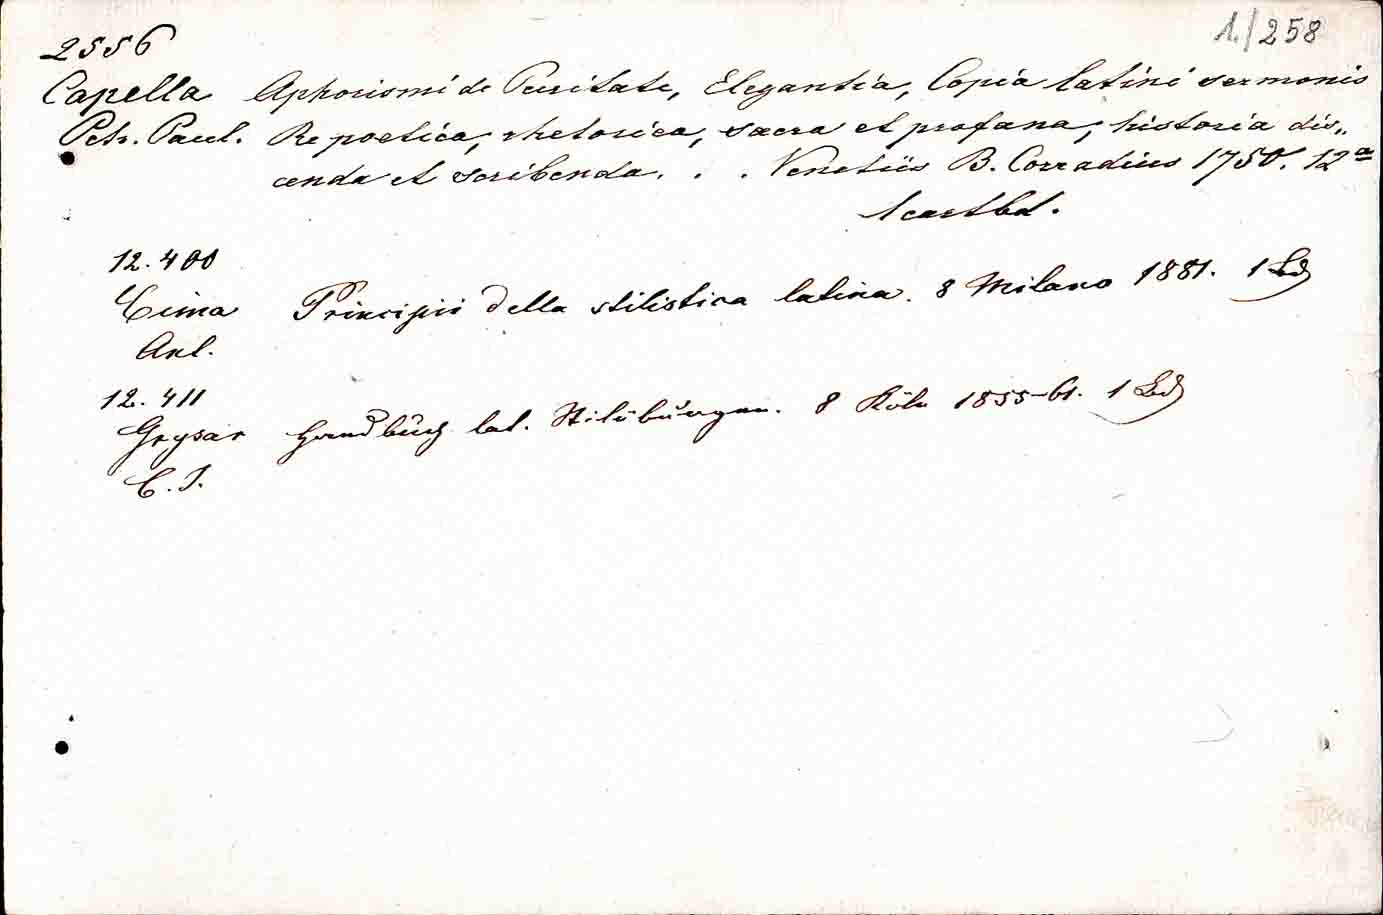 1./258
2556
Capella Aphorismi de Puritate, Elegantia, Copia latini sermonis
Petr. Paul. Re poetica, rhetorica, sacra et profana, historia dis„
cenda et scribenda. . . Venetiis B. Corradius 1750. 12°
1 cartbd.
12.400
Cima Principii della stilistica latina. 8 Milano 1881. 1 Bd
Ant.
12.411
Grysar Handbuch lat. Stilübungen. 8 Köln 1855-61. 1 Bd
C. J.